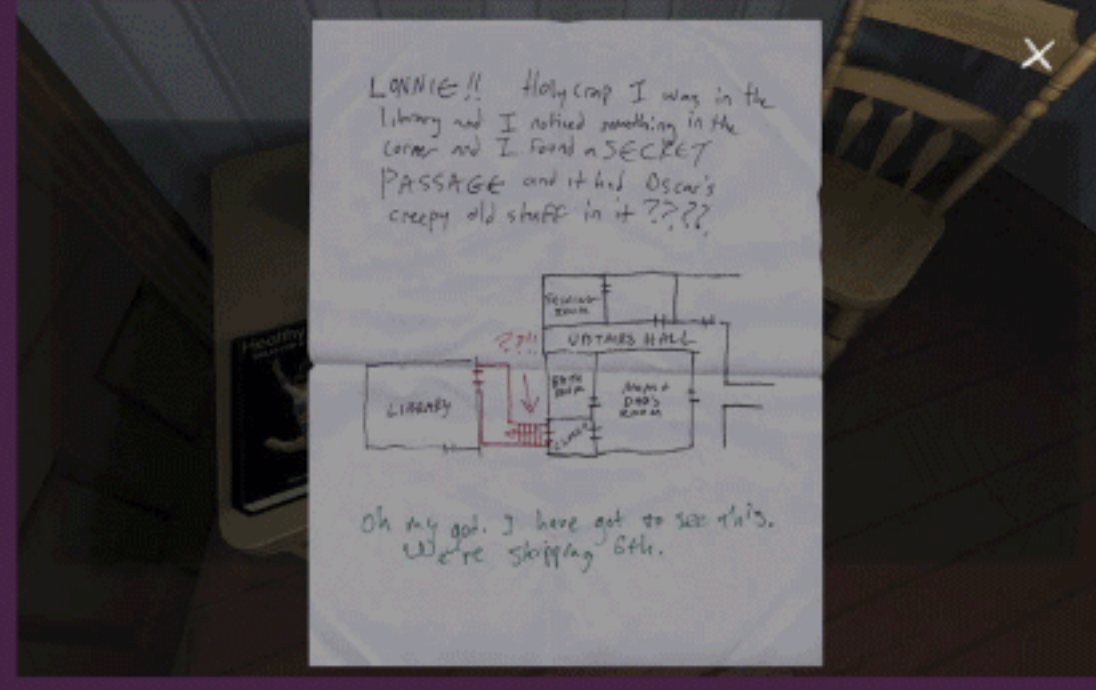 LONNIE!! Holy crap I was in the
library and I noticed something in the
corner and I found a SECRET
PASSAGE and it had Oscar's
creepy old stuff in it ????
SEWING
ROOM
UPSTAIRS HALL
??!!
BATH
ROOM
MOM &
DAD'S
ROOM
LIBRARY
CLOSET
Oh my god. I have got to see this.
We're skipping 6th.
Healthy